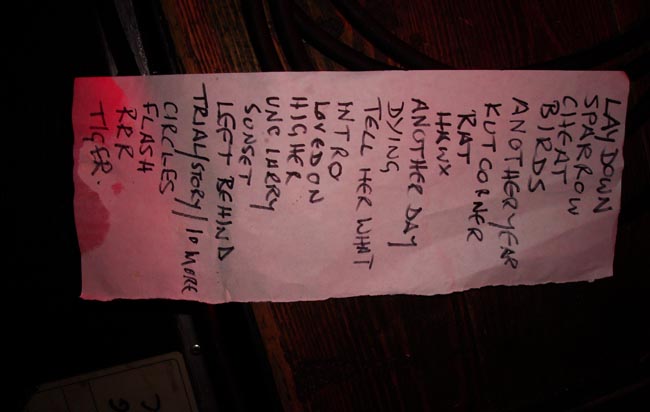 LAY DOWN
SPARROW
CHEAT
BIRDS
ANOTHER YEAR
KUTCORNER
RAT
HKNX
ANOTHER DAY
DYING
TELL HER WHAT
INTRO
LOVED ON
HIGHER
UNCLARRY
SUNSET
LEFT BEHIND
TRIAL/STORY/10 MORE
CIRCLES
FLASH
RRR
TIGER.